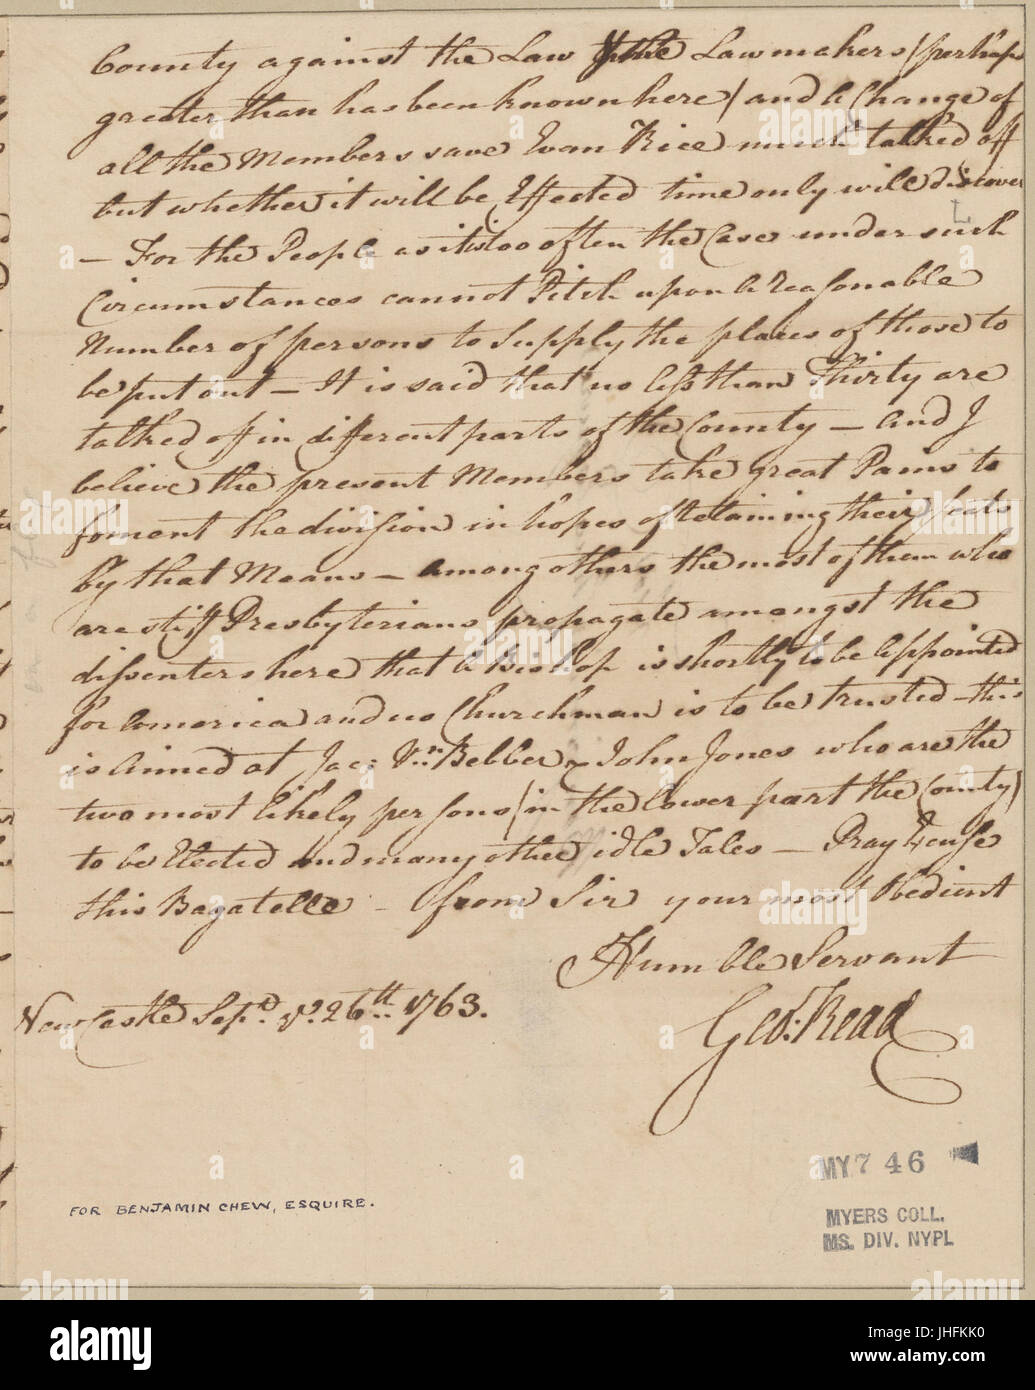 County against the Law & the Lawmakers (perhaps
greater than has been known here) and a Change of
all the Members save Evan Rice much talked off
but whether it will be Effected time only will discover
– For the People as it is too often the Case under such
Circumstances cannot Pitch upon a Reasonable
Number of persons to Supply the places of those to
be put out – It is said that no less than Thirty are
talked off in different parts of the County – and I
believe the present Members take great Pains to
foment the division in hopes of Retaining their Seats
by that Means – among others the most of them who
are stiff Presbyterians propagate amongst the
dissenters here that a Bishop is shortly to be Appointed
for America and no Churchman is to be trusted – this
is Aimed at Jac: Vn Bebber & John Jones who are the
two most likely persons (in the lower part the County)
to be Elected and many other idle Tales – Pray Excuse
this Bagatelle – from Sir your most Obedient
Humble Servant
Geo: Read
New Castle Sepr. ye. 26th. 1763.
MY 7 46
FOR BENJAMIN CHEW, ESQUIRE.
MYERS COLL.
MS. DIV. NYPL
alamy
Image ID: JHFKK0
www.alamy.com